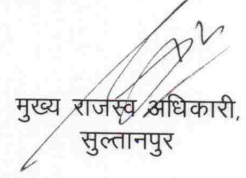 मुख्य राजस्व अधिकारी,
सुल्तानपुर